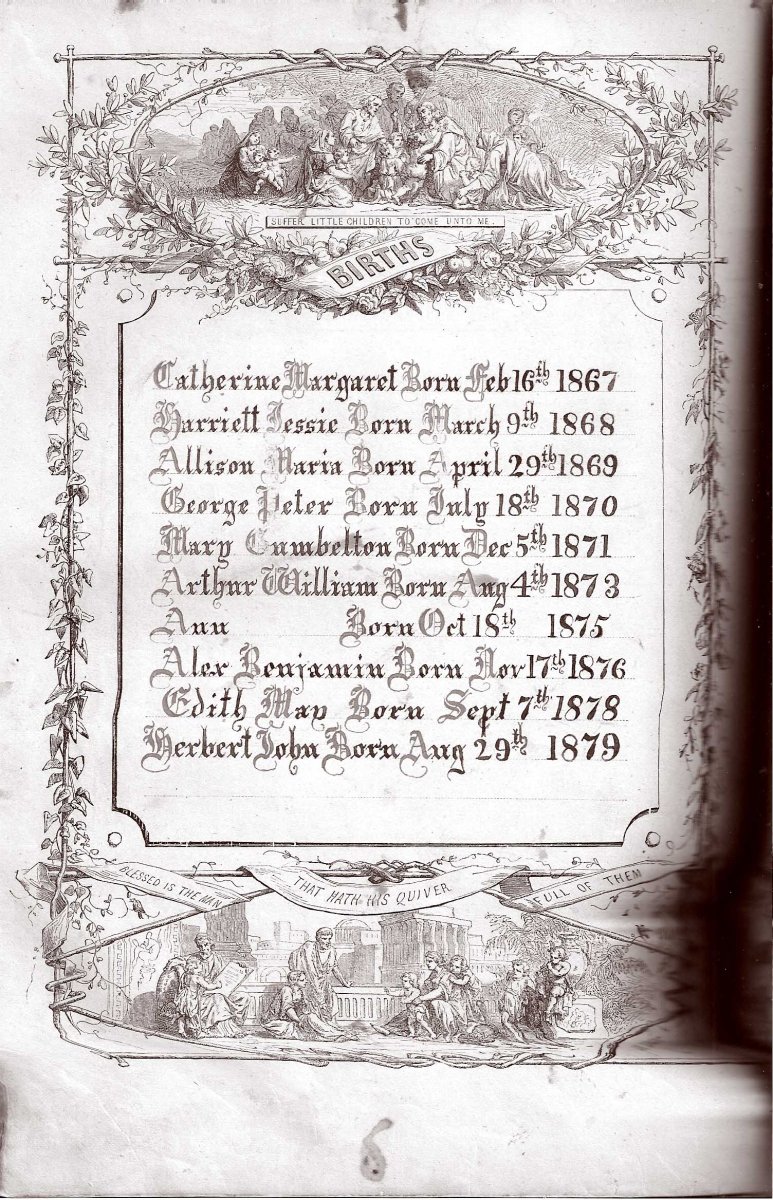 SUFFER LITTLE CHILDREN TO COME UNTO ME.
BIRTHS
Catherine Margaret Born Feb 16th 1867
Harriett Jessie Born March 9th 1868
Allison Maria Born April 29th 1869
George Peter Born July 18th 1870
Mary Cumbelton Born Dec 5th 1871
Arthur William Born Aug 4th 1873
Ann Born Oct 18th 1875
Alex Benjamin Born Nov 17th 1876
Edith May Born Sept 7th 1878
Herbert John Born Aug 29th 1879
BLESSED IS THE MAN THAT HATH HIS QUIVER FULL OF THEM
6